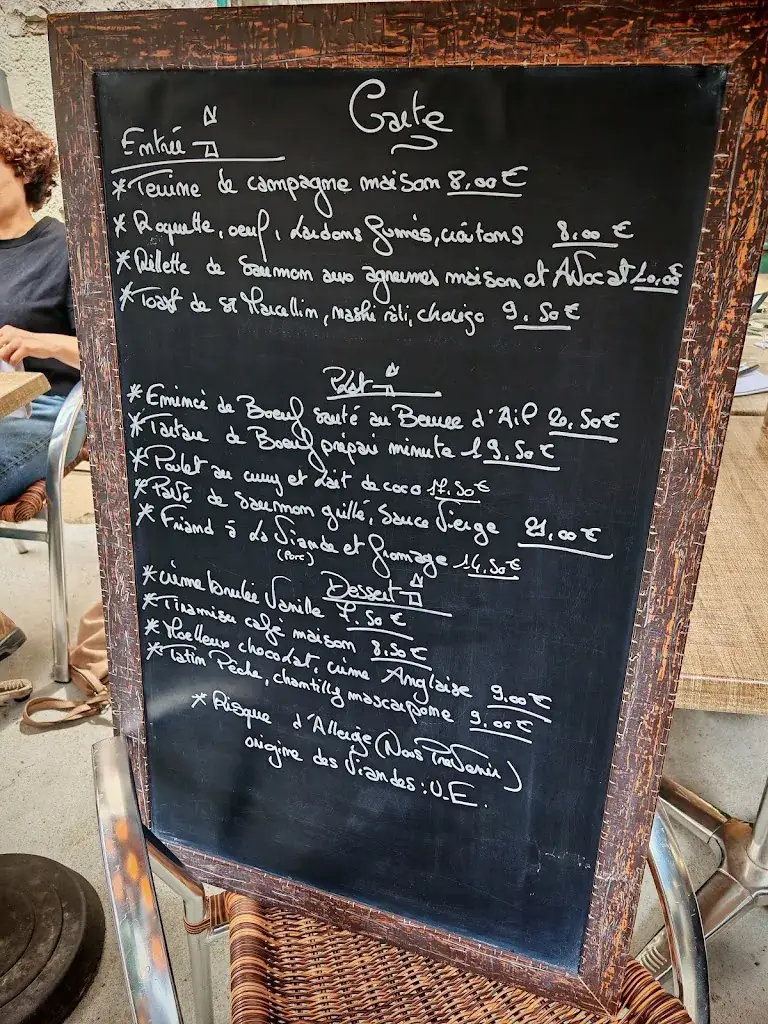 Carte
Entrée
* Terrine de campagne maison 8,00 €
* Roquette, oeuf, Lardons fumés, croûtons 8,00 €
* Rillette de Saumon aux agrumes maison et Avocat 10,00
* Toast de St Marcellin, chorizo 9,50 €
Plat
* Emincé de Boeuf sauté au Beurre d'Ail 20,50 €
* Tartare de Boeuf préparé minute 19,50 €
* Poulet au curry et Lait de coco 17,50 €
* Pavé de saumon grillé, Sauce Vierge 21,00 €
* Friand à La Viande et fromage 14,50 €
(Porc)
Dessert
* crème brulée Vanille 7,50 €
* Tiramisu café maison 8,50 €
* Moelleux chocolat, crème Anglaise 9,00 €
* Tatin Pêche, chantilly mascarpone 9,00 €
* Risque d'Allergie (Nous Prévenir)
origine des Viandes : U.E.